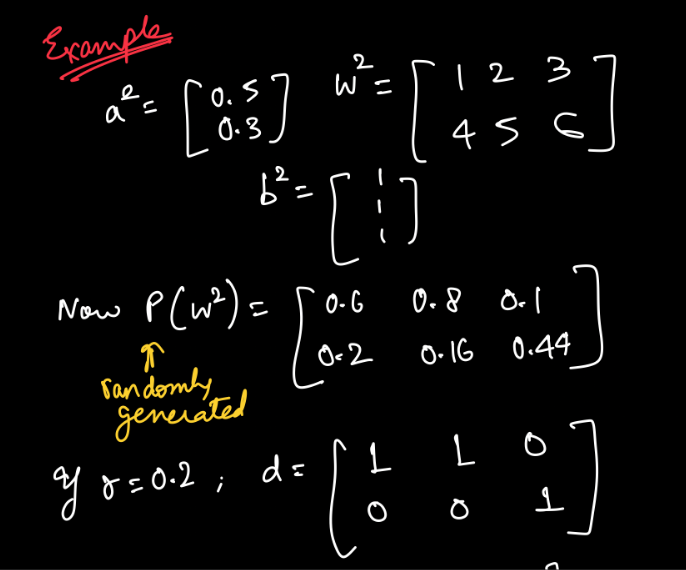 Example
a² = [0.5 0.3] w² = [1 2 3
4 5 6]
b² = [1 1 1]
Now P(w²) = [0.6 0.8 0.1
0.2 0.16 0.44]
↑
randomly
generated
If γ = 0.2 ; d = [1 1 0
0 0 1]